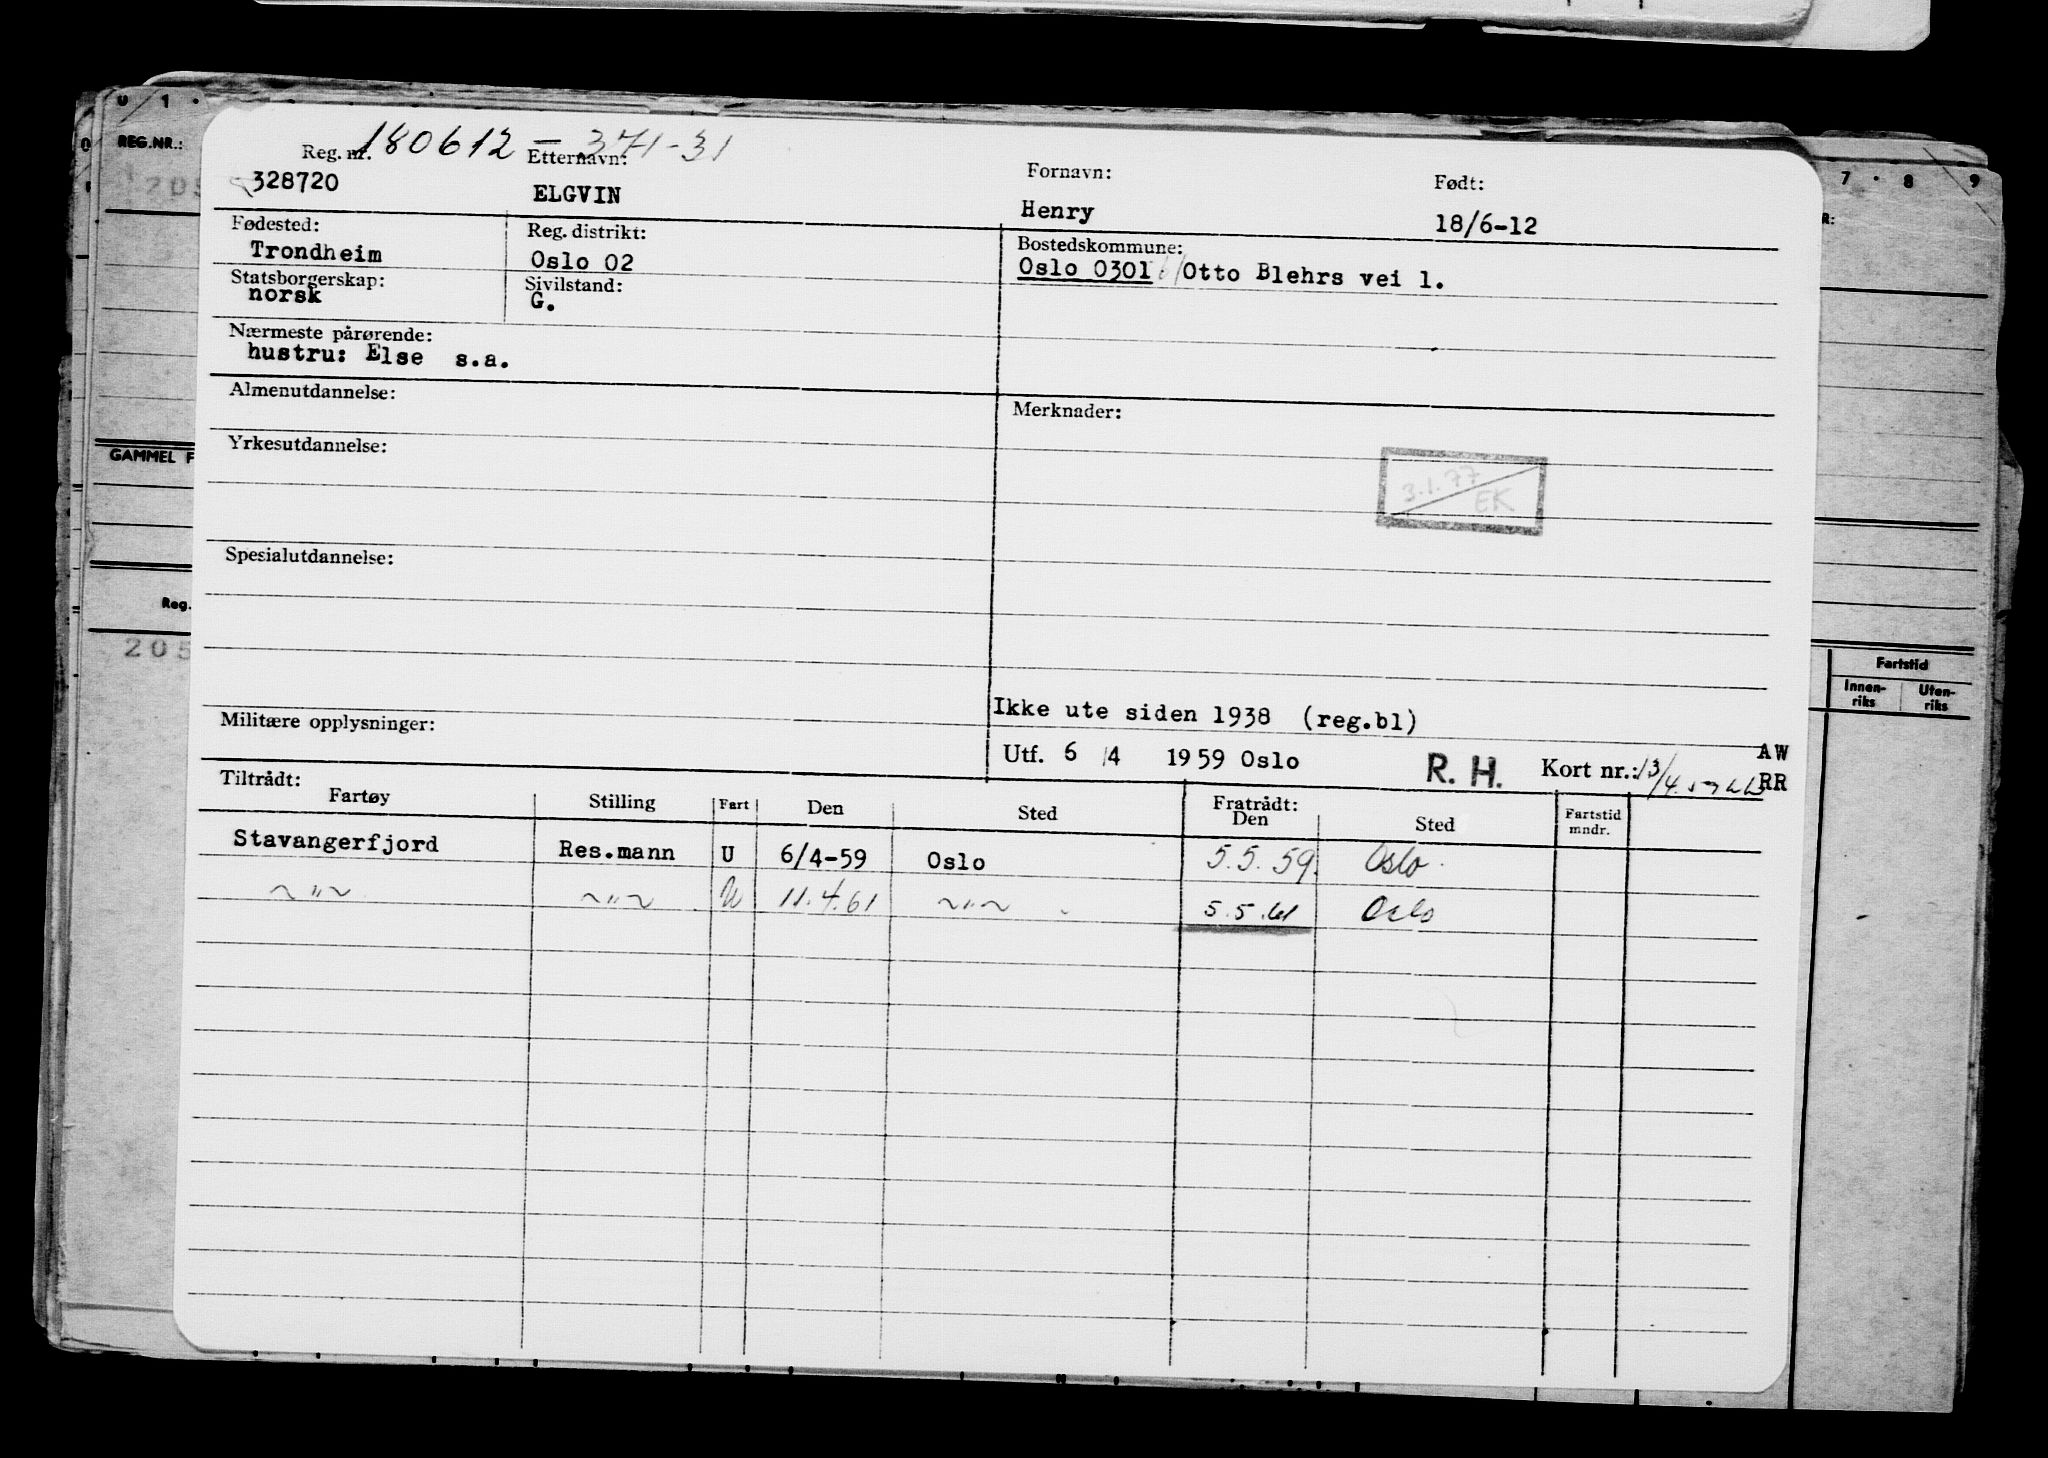 0 1 .
REG.NR.:
205
GAMMEL F
Reg.
205
7 . 8 9
R:
Fartstid
Innen-riks Uten-riks
180612 - 371-31
Reg. nr. Etternavn: Fornavn: Født:
328720 ELGVIN Henry 18/6-12
Fødested: Reg. distrikt: Bostedskommune:
Trondheim Oslo 02 Oslo 0301 Otto Blehrs vei 1.
Statsborgerskap: Sivilstand:
norsk G.
Nærmeste pårørende:
hustru: Else s.a.
Almenutdannelse: Merknader:
Yrkesutdannelse:
3.1.77
EK
Spesialutdannelse:
Ikke ute siden 1938 (reg.bl)
Militære opplysninger:
Utf. 6 /4 1959 Oslo R. H. Kort nr.: 13/4.59 AW
RR
Tiltrådt: Fratrådt:
Fartøy Stilling Fart Den Sted Den Sted Fartstid mndr.
Stavangerfjord Res.mann U 6/4-59 Oslo 5.5.59. Oslo.
~"~ ~"~ U 11.4.61 ~"~ 5.5.61 Oslo